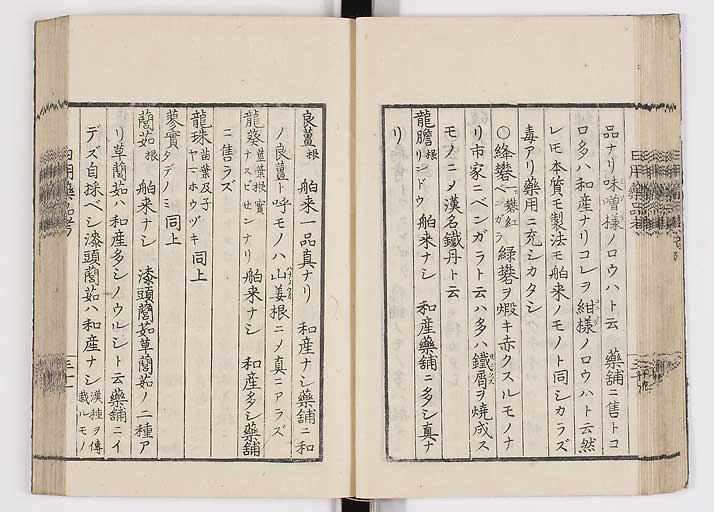 品ナリ味噌様ノロウハト云 藥舗ニ售トコ
ロ多ハ和産ナリコレヲ紺様ノロウハト云然
レモ本質モ製法モ舶来ノモノト同シカラズ
毒アリ藥用ニ充シカタシ
〇絳礬 一名礬紅 ベンガラ 緑礬ヲ煆キ赤クスルモノナ
リ市家ニベンガラト云ハ多ハ鐵屑ヲ焼成ス
モノニメ漢名鐵丹ト云
龍膽 根 リンドウ 舶来ナシ 和産藥舗ニ多シ真ナ
リ
良薑 根 舶来一品真ナリ 和産ナシ藥舗ニ和
ノ良薑ト呼モノハ山姜根ニメ真ニアラズ
龍葵 茎葉根實 ナスビせンナリ 舶来ナシ 和産多シ藥舗
ニ售ラズ
龍珠 苗葉及子 ヤマホウヅキ 同上
蓼實 タデノミ 同上
藺茹 根 舶来ナシ 漆頭藺茹草藺茹ノ二種ア
リ草藺茹ハ和産多シノウルシト云藥舗ニイ
デズ自採ベシ漆頭藺茹ハ和産ナシ 漢種ヲ傳 栽ルモノ
日用藥品考
三十一